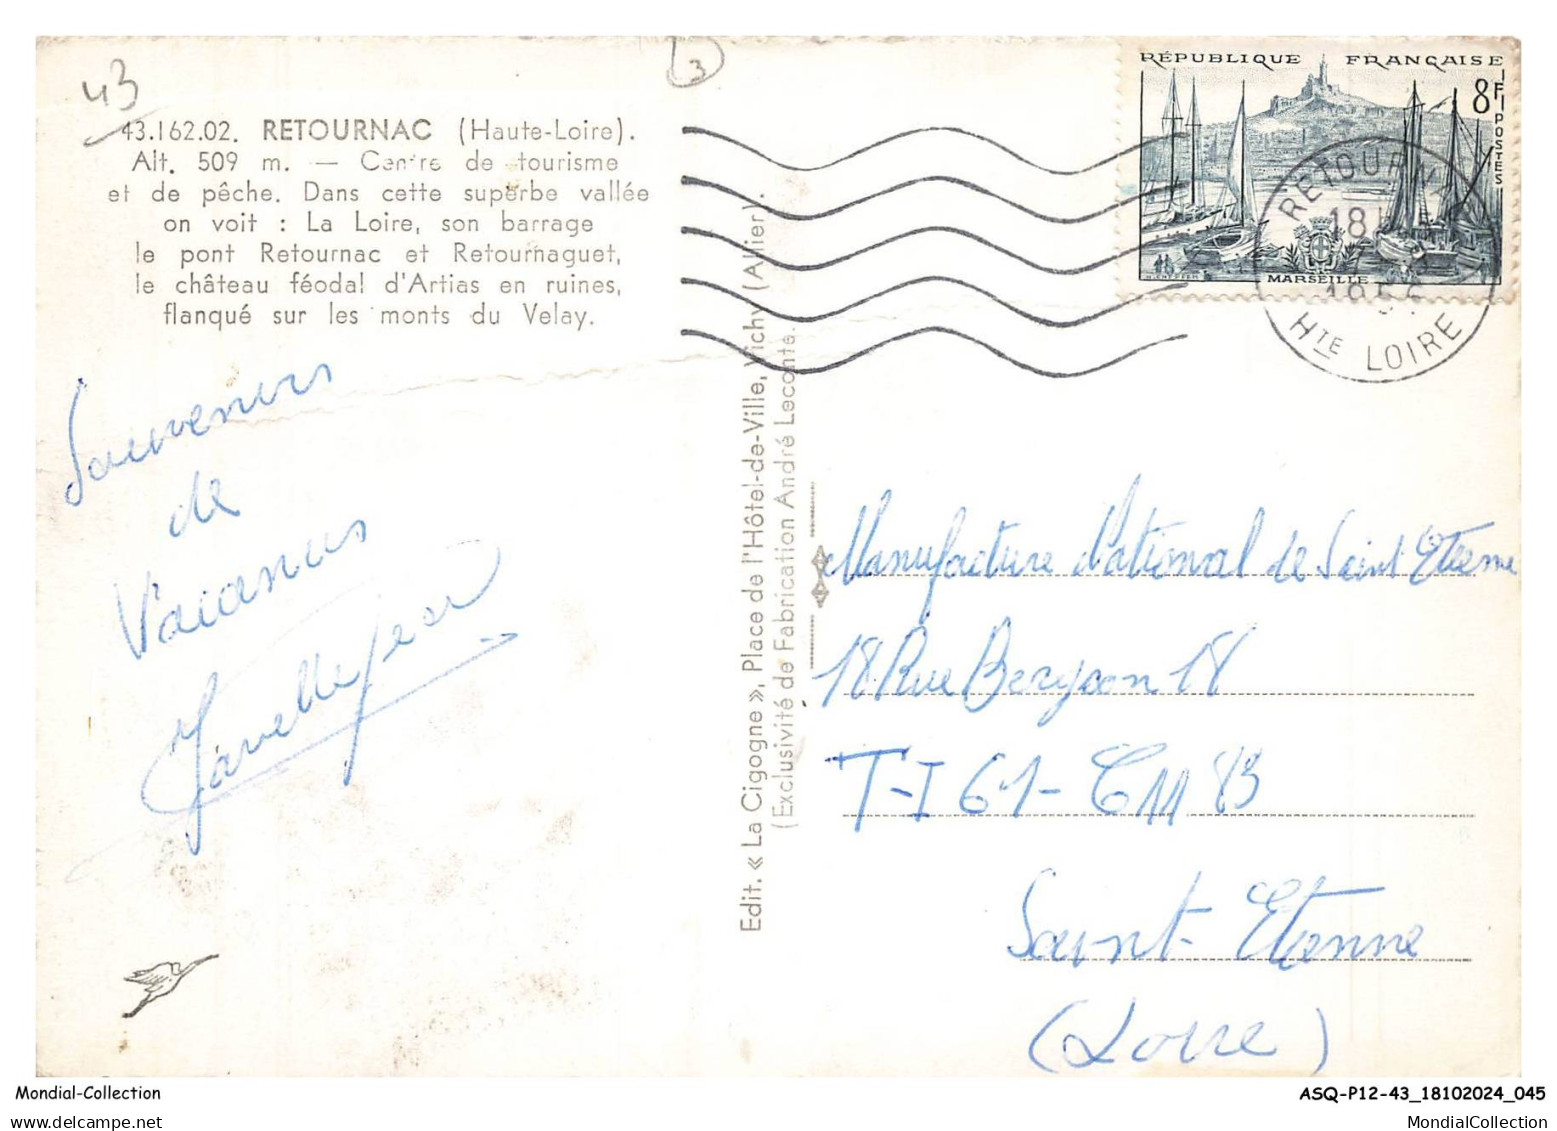 43
3
43.162.02. RETOURNAC (Haute-Loire).
Alt. 509 m. — Centre de tourisme
et de pêche. Dans cette superbe vallée
on voit : La Loire, son barrage
le pont Retournac et Retournaguet,
le château féodal d'Artias en ruines,
flanqué sur les monts du Velay.
Souvenirs
de
Vacances
Javelle Jean
Edit. « La Cigogne », Place de l'Hôtel-de-Ville, Vichy (Allier).
(Exclusivité de Fabrication André Leconte.
RÉPUBLIQUE FRANÇAISE
8F
POSTES
MARSEILLE
RETOURN
18
HTE LOIRE
Manufacture National de Saint Etienne
18 Rue Bergson 18
T-I 61-
83
Saint-Etienne
(Loire)
Mondial-Collection
ASQ-P12-43_18102024_045
MondialCollection